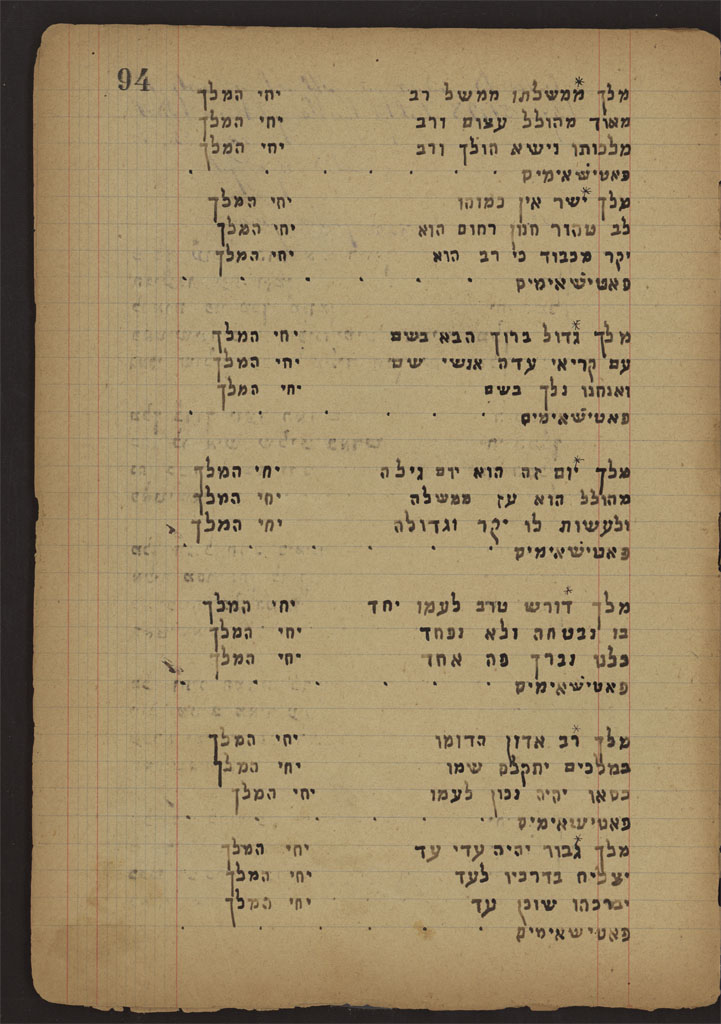 94
מלך ממשלתו ממשל רב יחי המלך
מאוד מהולל עצום ורב יחי המלך
מלכותו נישא הולך ורב יחי המלך
פאטישאימיס . . . . . .
מלך ישר אין כמוהו יחי המלך
לב טהור חנון רחום הוא יחי המלך
יקר מכבוד כי רב הוא יחי המלך
פאטישאימיס . . . . . .
מלך גדול ברוך הבא בשם יחי המלך
עם קריאי עדה אנשי שם יחי המלך
ואנחנו נלך בשם יחי המלך
פאטישאימיס . . . . . .
מלך יום זה הוא יום גילה יחי המלך
מהולל הוא עז ממשלה יחי המלך
ולעשות לו יקר וגדולה יחי המלך
פאטישאימיס . . . . . .
מלך דורש טוב לעמו יחד יחי המלך
בו נבטחה ולא נפחד יחי המלך
כלנו נברך פה אחד יחי המלך
פאטישאימיס . . . . . .
מלך רב אדון הדומו יחי המלך
במלכים יתקלס שמו יחי המלך
כסאו יהיה נכון לעמו יחי המלך
פאטישאימיס . . . . . .
מלך גבור יהיה עדי עד יחי המלך
יצליח בדרכיו לעד יחי המלך
יברכהו שוכן עד יחי המלך
פאטישאימיס . . . . . .